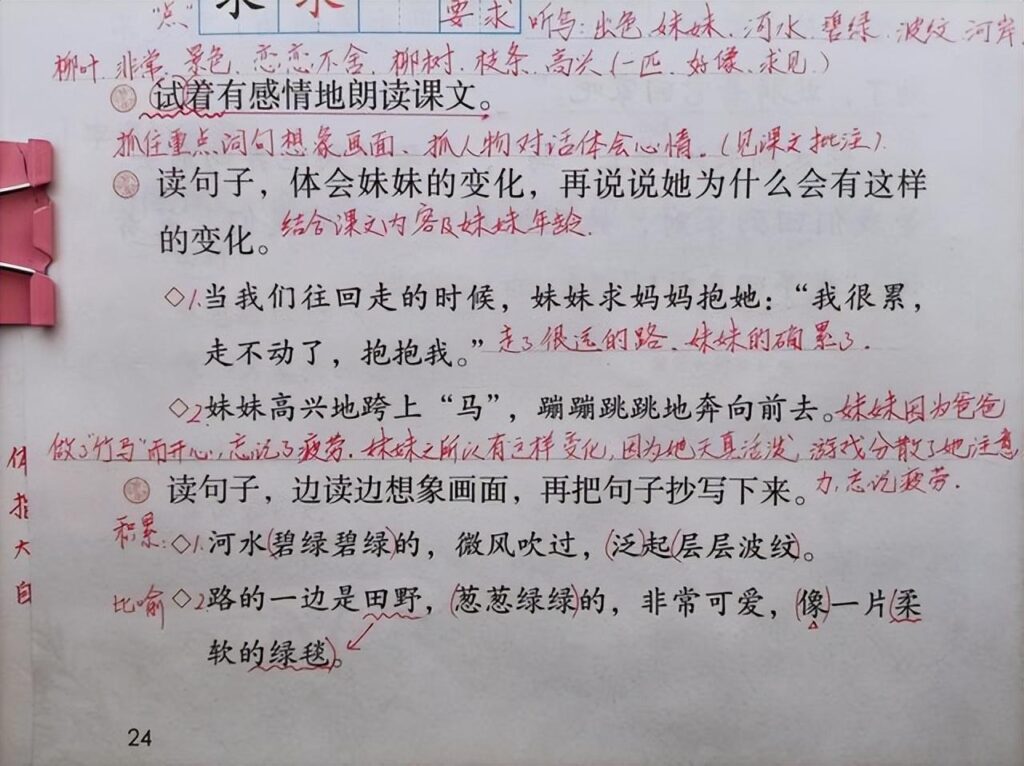 "点" 求 求 要求 听写:出色、妹妹、河水、碧绿、波纹、河岸、
柳叶、非常、景色、恋恋不舍、柳树、枝条、高兴(一匹、好像、求见)
试着有感情地朗读课文。
抓住重点词句想象画面、抓人物对话体会心情。(见课文批注)
读句子,体会妹妹的变化,再说说她为什么会有这样
的变化。结合课文内容及妹妹年龄.
◇1.当我们往回走的时候,妹妹求妈妈抱她:“我很累,
走不动了,抱抱我。”走了很远的路、妹妹的确累了.
◇2.妹妹高兴地跨上“马”,蹦蹦跳跳地奔向前去。妹妹因为爸爸
做了"竹马"而开心,忘记了疲劳.妹妹之所以有这样变化,因为她天真活泼,游戏分散了她注意
读句子,边读边想象画面,再把句子抄写下来。力,忘记疲劳.
积累:◇1.河水(碧绿碧绿)的,微风吹过,(泛)起(层层波纹)。
比喻◇2.路的一边是田野,(葱葱绿绿)的,非常可爱,(像)一片(柔
软的绿毯)。
指
大
自
24